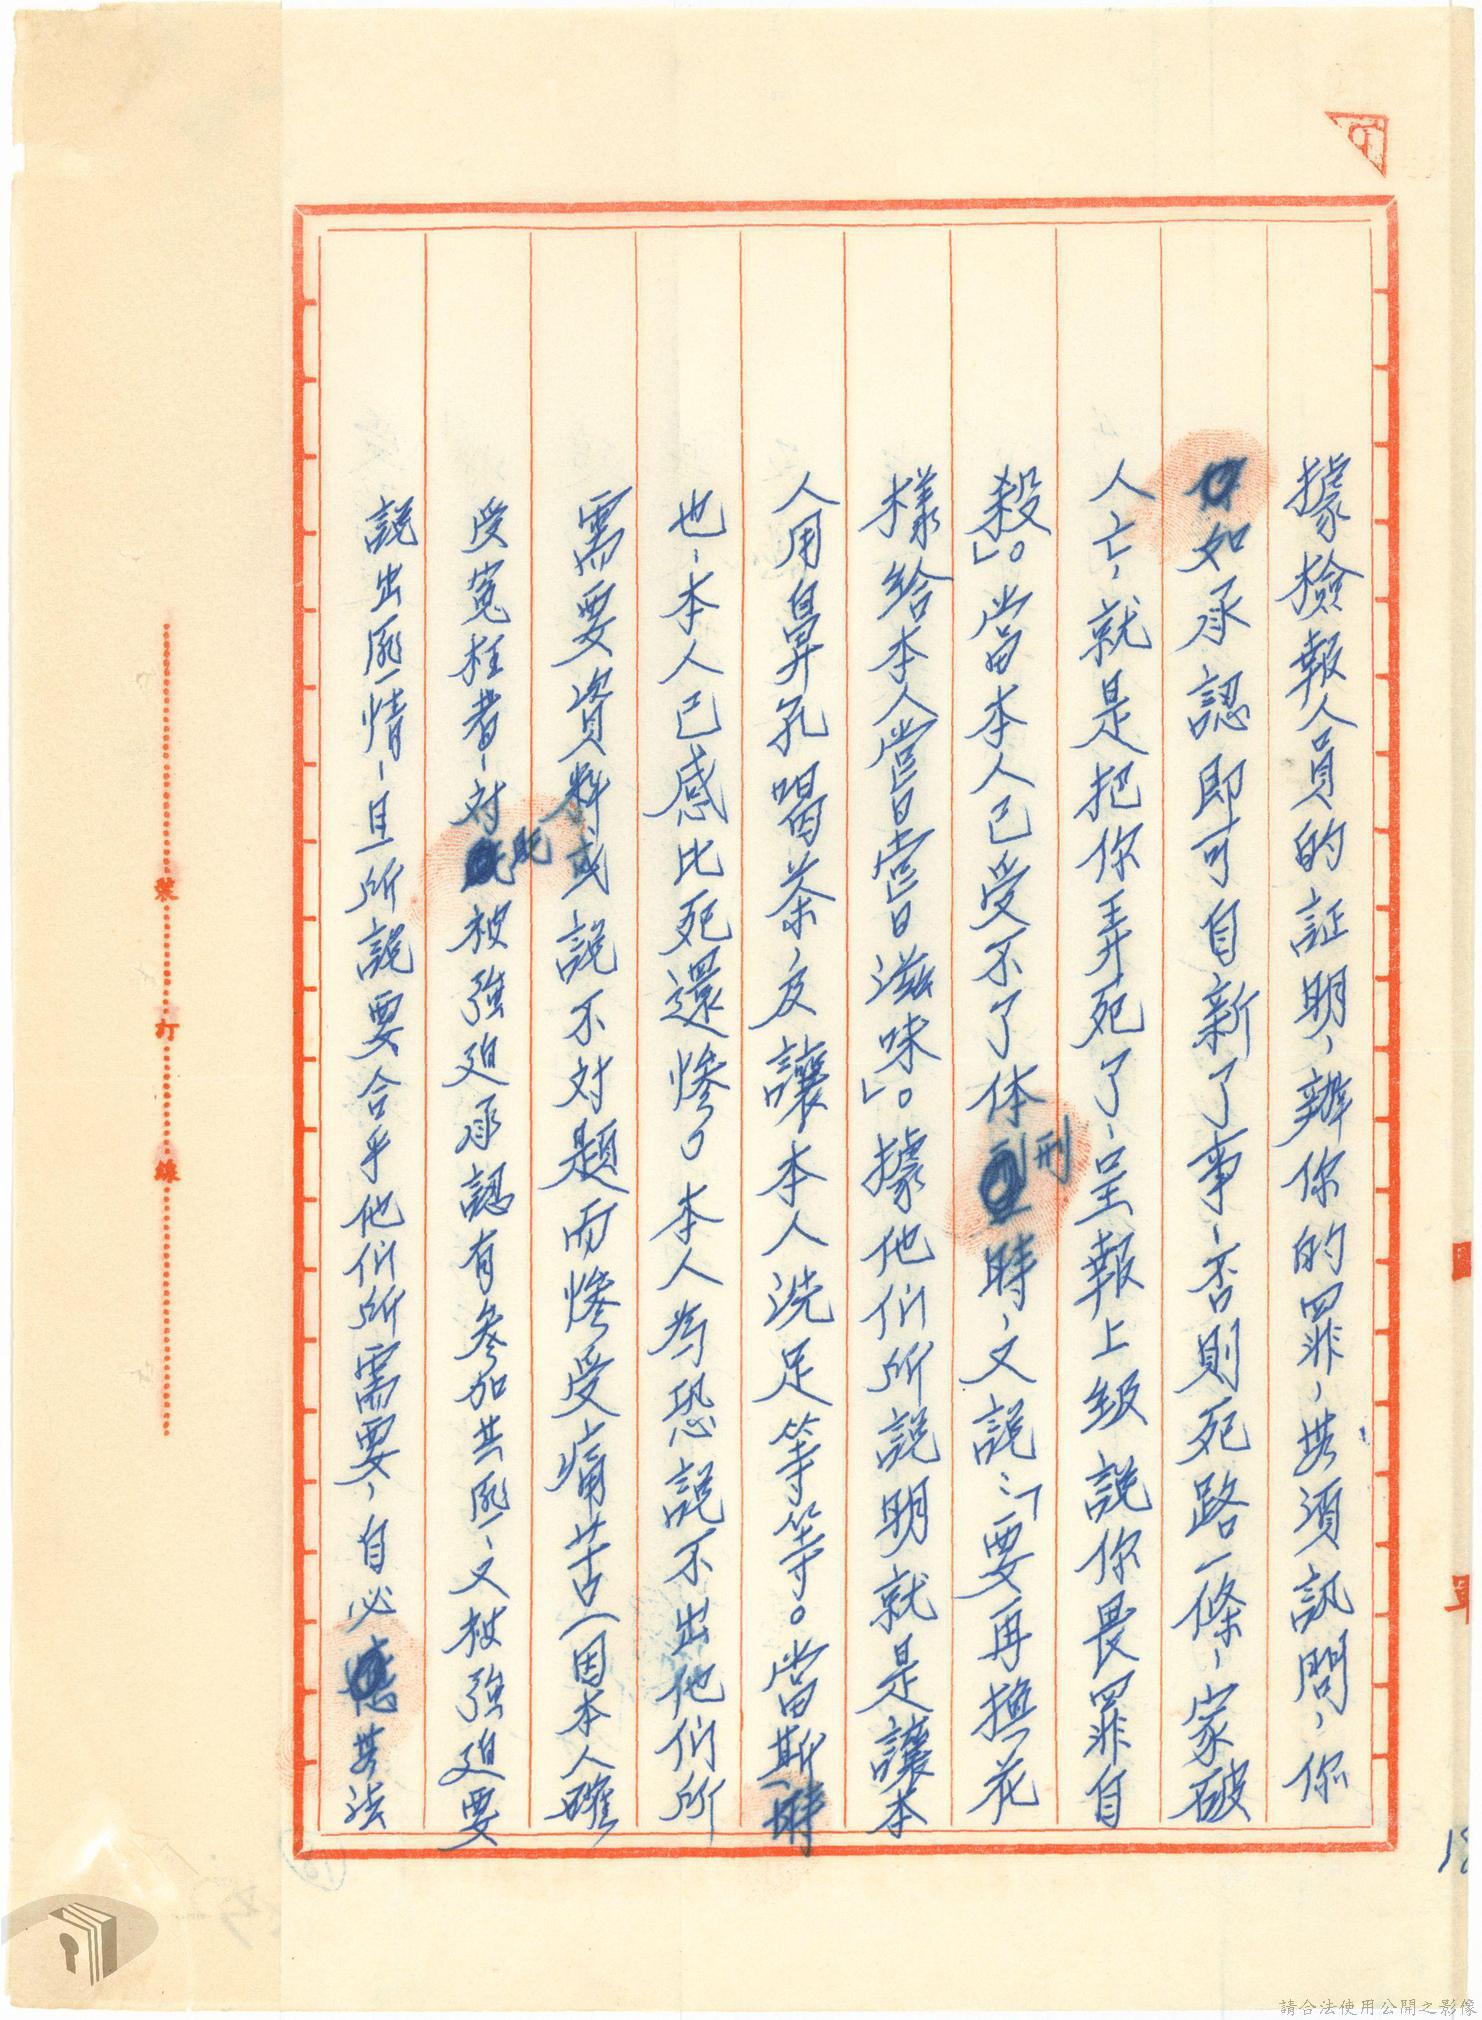 據檢報人員的証明，辦你的罪，毋須訊問，你
如承認即可自新了事，否則死路一條，家破
人亡，就是把你弄死了，呈報上級說你畏罪自
殺」。當本人已受不了体刑時，又說：「要再換花
樣給本人嘗嘗滋味」。據他们所說明就是讓本
人用鼻孔喝茶，及讓本人洗足等等。當斯時
也，本人已感比死還慘。本人為恐說不出他们所
需要資料或說不对題而慘受痛苦（因本人確
受冤枉者，对此被強迫承認有參加共匪，又被強迫要
說出匪情，且所說要合乎他们所需要，自必甚法
裝 打 線
請合法使用公開之影像